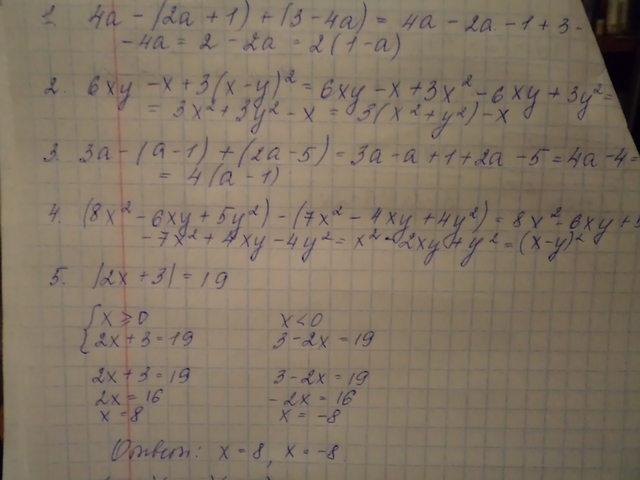 1. 4a - (2a + 1) + (3 - 4a) = 4a - 2a - 1 + 3 -
- 4a = 2 - 2a = 2(1-a)
2. 6xy - x + 3(x-y)² = 6xy - x + 3x² - 6xy + 3y² =
= 3x² + 3y² - x = 3(x² + y²) - x
3. 3a - (a - 1) + (2a - 5) = 3a - a + 1 + 2a - 5 = 4a - 4 =
= 4(a - 1)
4. (8x² - 6xy + 5y²) - (7x² - 4xy + 4y²) = 8x² - 6xy + 5
- 7x² + 4xy - 4y² = x² - 2xy + y² = (x-y)²
5. |2x + 3| = 19
{ x ≥ 0 x < 0
2x + 3 = 19 3 - 2x = 19
2x + 3 = 19 3 - 2x = 19
2x = 16 - 2x = 16
x = 8 x = -8
Ответ: x = 8, x = -8.